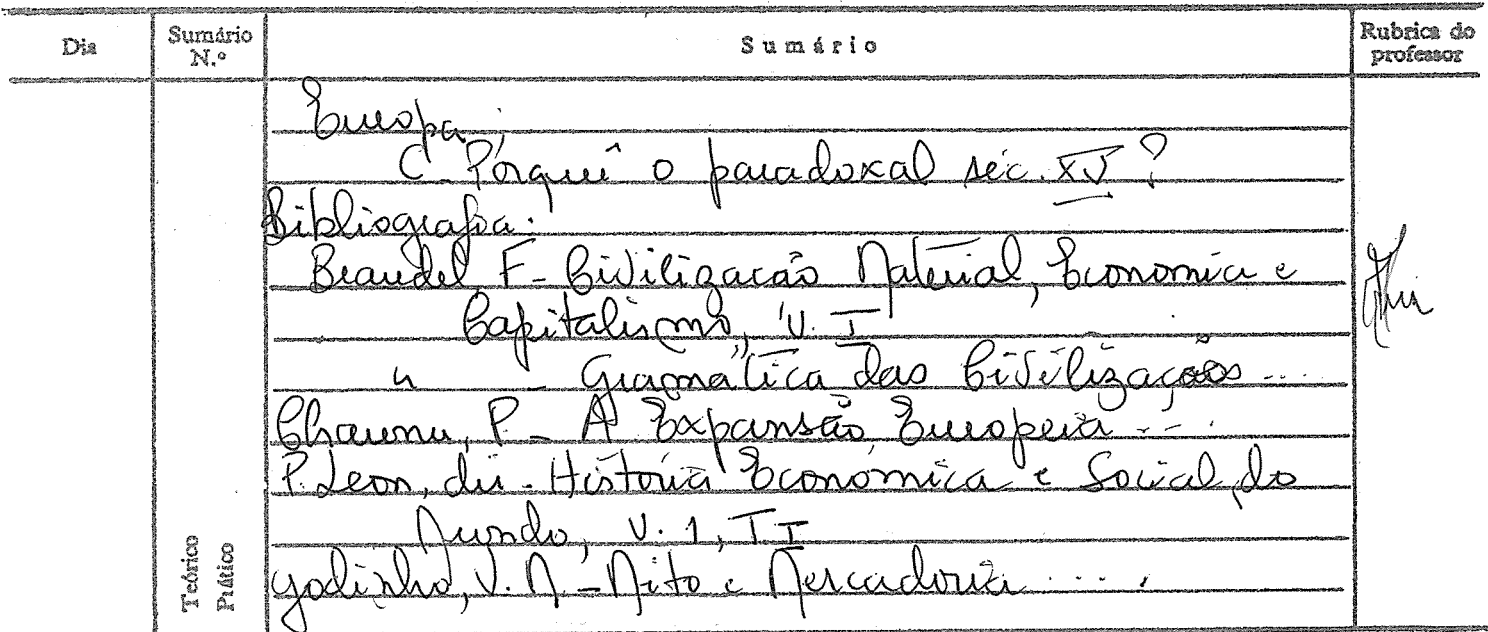 Dia Sumário N.º Sumário Rubrica do professor
Europa;
C- Porquê o paradoxal séc. XV?
Bibliografia:
Braudel, F- Civilização Material, Economia e
Capitalismo, V. I
" - Gramática das Civilizações ...
Chaunu, P. - A Expansão Europeia ...
P. Leon, dir - História Económica e Social do
Mundo, V. 1, T. I
Godinho, V. M. - Mito e Mercadoria ....
Teórico
Prático